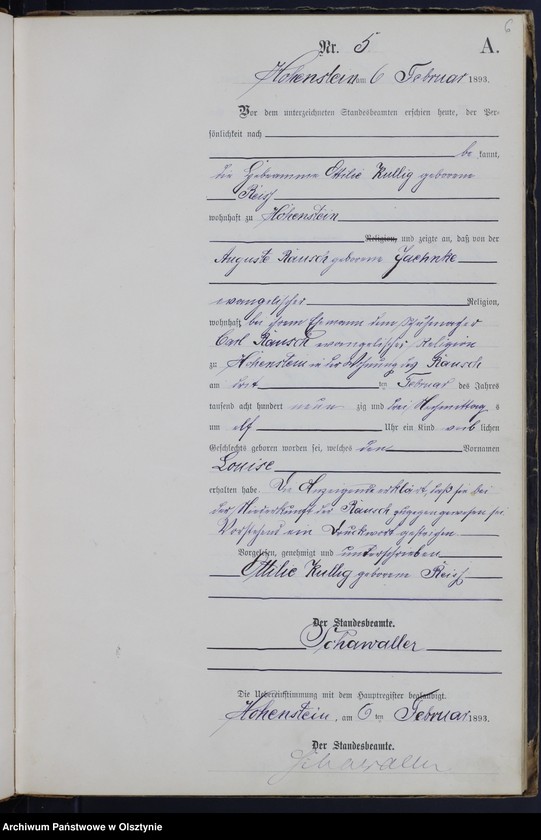 6
Nr. 5 A.
Hohenstein am 6 Februar 1893.
Vor dem unterzeichneten Standesbeamten erschien heute, der Per-
sönlichkeit nach
be kannt,
die Hebeamme Ottilie Kullig geborene
Reich
wohnhaft zu Hohenstein
Religion, und zeigte an, daß von der
Auguste Rausch geborene Jaehnke
evangelischer Religion,
wohnhaft bei ihrem Ehemann dem
Carl Rausch evangelischer Religion
zu Hohenstein in der Wohnung des Rausch
am drei ten Februar des Jahres
tausend acht hundert neun zig und drei Nachmittag s
um elf Uhr ein Kind weib lichen
Geschlechts geboren worden sei, welches den Vornamen
Louise
erhalten habe. Die Anzeigende erklärt, daß sie bei
der Niederkunft der Rausch zugegen gewesen sei
Vorstehend ein Druckwort gestrichen
Vorgelesen, genehmigt und unterschrieben
Ottilie Kullig geborene Reich
Der Standesbeamte.
Schawaller
Die Uebereinstimmung mit dem Hauptregister beglaubigt.
Hohenstein, am 6 ten Februar 1893.
Der Standesbeamte.
Schawaller.
Archiwum Państwowe w Olsztynie